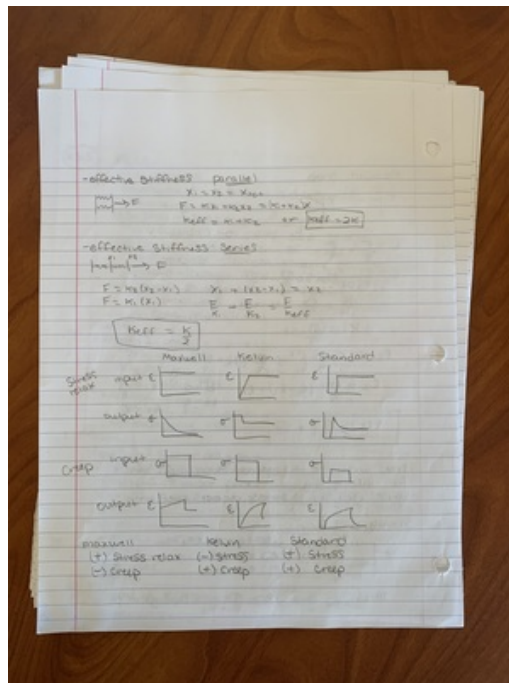 -effective stiffness parallel
x₁ = x₂ = x
→ F
F = K₁x₁+K₂x₂ = (K₁+K₂)x
Keff = K₁+K₂ or Keff = 2K
-effective stiffness series
K₁ K₂ → F
F = K₂(x₂-x₁) x₁ + (x₂-x₁) = x₂
F = K₁(x₁) F/K₁ F/K₂ = F/Keff
Keff = K/2
Maxwell Kelvin Standard
Stress relax input ε ε ε
output σ σ σ
Creep input σ σ σ
output ε ε ε
maxwell Kelvin Standard
(+) Stress relax (-) Stress (+) Stress
(-) Creep (+) Creep (+) Creep